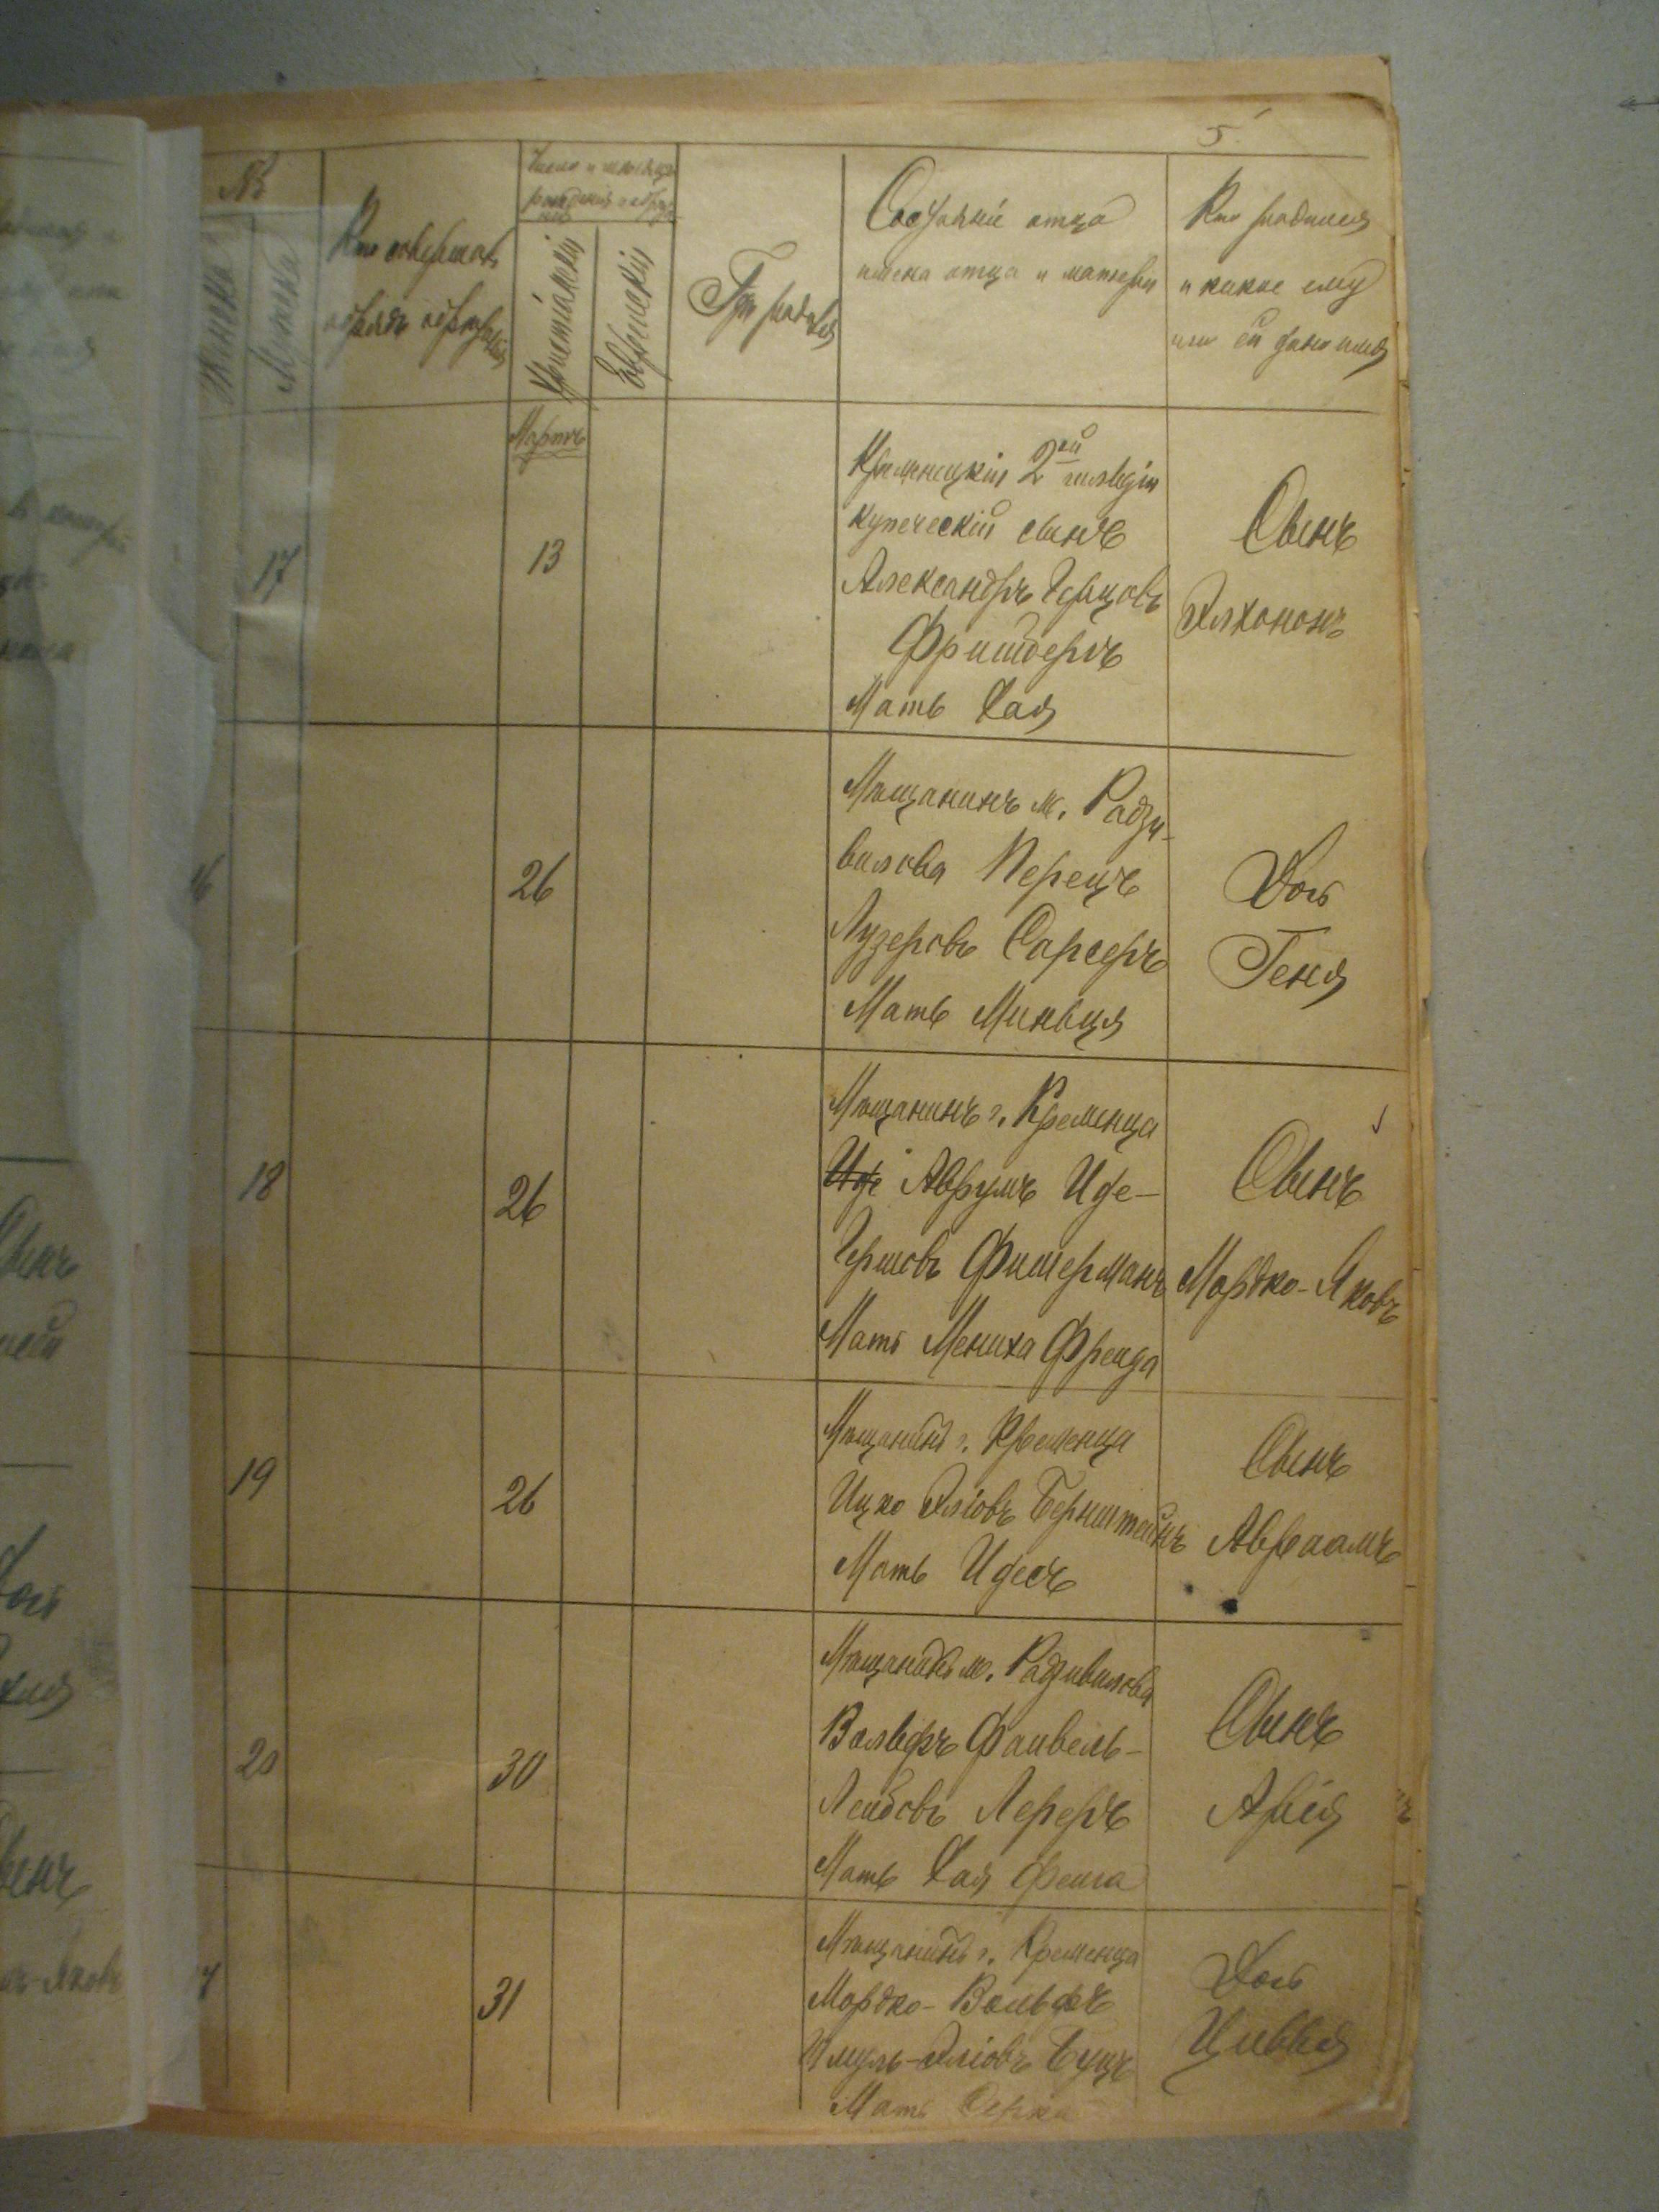 5.
№
Женска
Мужека
Кто совершалъ
обрядъ обрѣзанія
Число и мѣсяцъ
рожденія и обрѣз
анія
Христіанскій
Еврейскій
Гдѣ родился
Состояніе отца
имена отца и матери
Кто родился
и какое ему
или ей дано имя
Мартъ
17
13
Кременецкій 2ой гильдіи
купеческій сынъ
Александръ Герцовъ
Фришбергъ
Мать Хая
Сынъ
Элхононъ
26
Мѣщанинъ м. Радзи-
вилова Перецъ
Лузеровъ Сарсеръ
Мать Миньця
Дочь
Геня
18
26
Мѣщанинъ г. Кременца
Аврумъ Иде-
Гершовъ Фишерманъ
Мать Мениха Фрейда
Сынъ
Мордко-Яковъ
19
26
Мѣщанинъ г. Кременца
Ицко Эліовъ Бернштейнъ
Мать Идесъ
Сынъ
Авраамъ
20
30
Мѣщанинъ м. Радзивилова
Вольфъ Файвель-
Лейбовъ Лереръ
Мать Хая Фейга
Сынъ
Арія
31
Мѣщанинъ г. Кременца
Мордко-Вольфъ
Шмуль-Эліовъ Буцъ
Мать
Дочь
Цивья